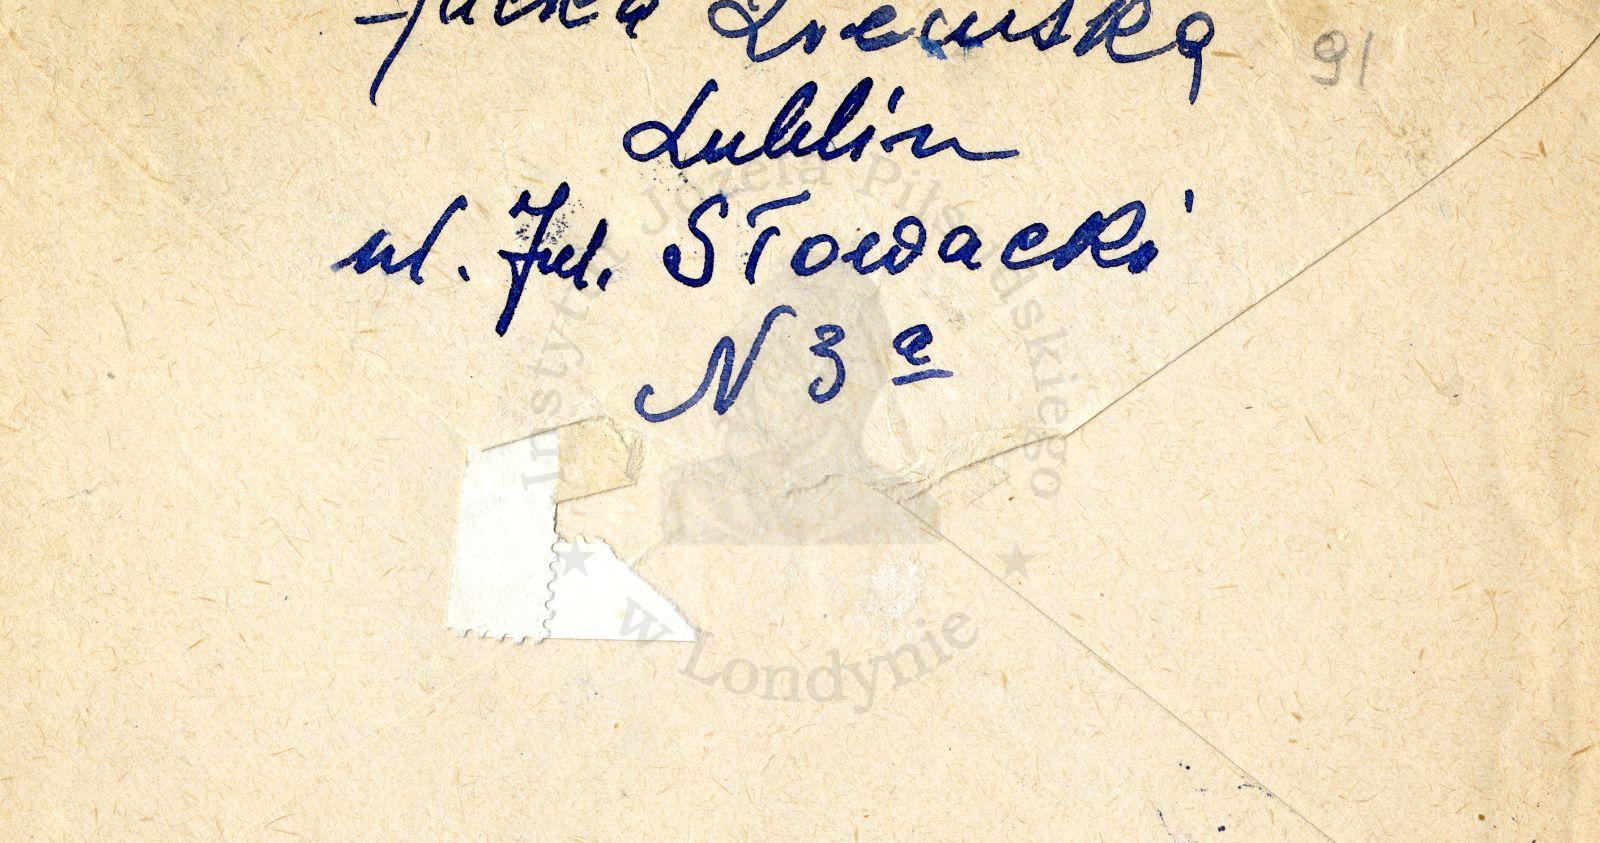 91
Lublin
ul. Jul. Słowacki
N 3 a
Instytut Józefa Piłsudskiego
w Londynie